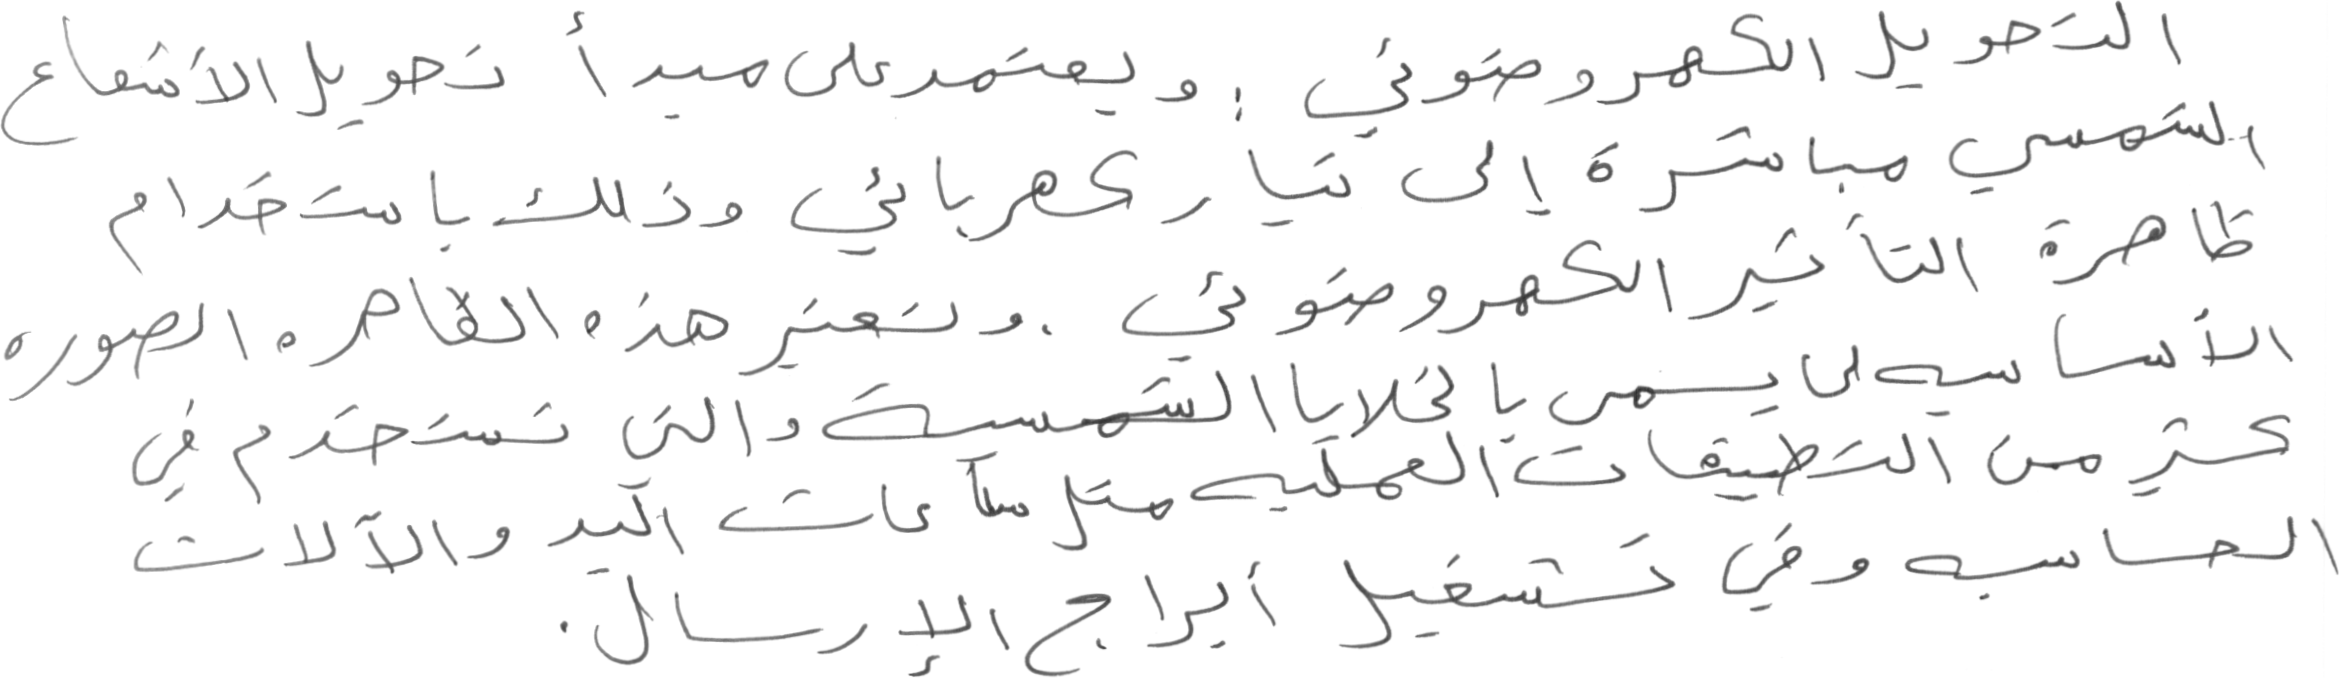 التحويل الكهروضوئي : ويعتمد على مبدأ تحويل الأشعاع
الشمسي مباشرة إلى تيار كهربائي وذلك باستخدام
ظاهرة التأثير الكهروضوئي . وتعتبر هذه الظاهره الصوره
الأساسيه لما يسمى بالخلايا الشمسية والتي تستخدم في
كثير من التطبيقات العمليه مثل ساعات اليد والآلات
الحاسبه وفي تشغيل أبراج الإرسال .